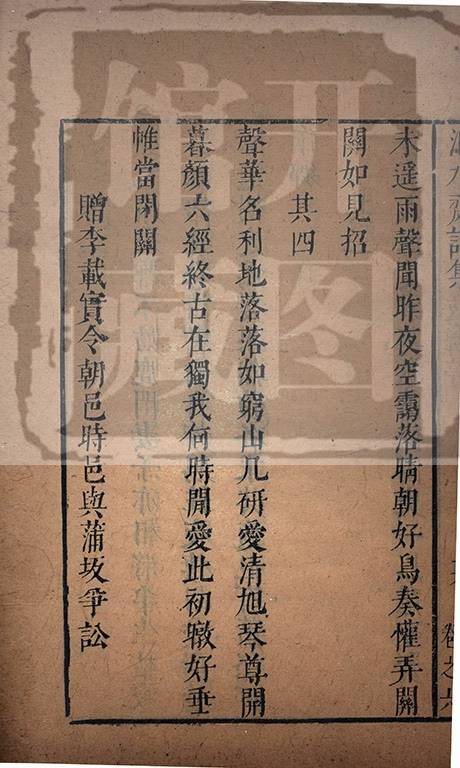 未遥雨聲聞昨夜空靄落晴朝好鳥奏懽弄關
關如見招
其四
聲華名利地落落如窮山几研愛清旭琴尊開
暮顏六經終古在獨我何時閒愛此初辙好垂
帷當閑關
贈李載實令朝邑時邑與蒲坂爭訟
卷之六
开图
馆藏